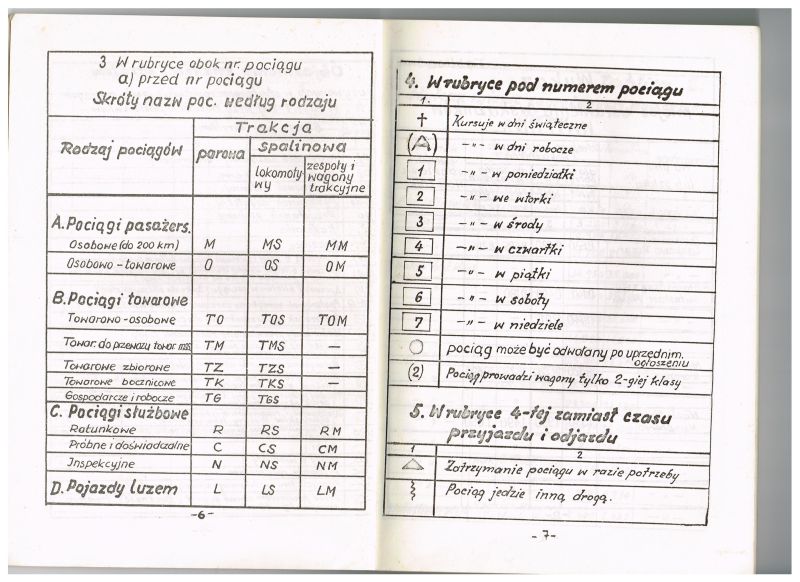 3 W rubryce obok nr. pociągu
a) przed nr pociągu
Skróty nazw poc. według rodzaju
Rodzaj pociągów
Trakcja
parowa
Spalinowa
lokomoty-
wy
zespoły i
wagony
trakcyjne
A. Pociągi pasażers.
Osobowe (do 200 km) M MS MM
Osobowo-towarowe O OS OM
B. Pociągi towarowe
Towarowo-osobowe TO TOS TOM
Towar. do przewozu towar. mas. TM TMS —
Towarowe zbiorowe TZ TZS —
Towarowe bocznicowe TK TKS —
Gospodarcze i robocze TG TGS
C. Pociągi służbowe
Ratunkowe R RS RM
Próbne i doświadczalne C CS CM
Inspekcyjne N NS NM
D. Pojazdy luzem L LS LM
-6-
4. W rubryce pod numerem pociągu
1. 2
† Kursuje w dni świąteczne
(A) -"- w dni robocze
1 -"- w poniedziałki
2 -"- we wtorki
3 -"- w środy
4 -"- w czwartki
5 -"- w piątki
6 -"- w soboty
7 -"- w niedziele
○ pociąg może być odwołany po uprzednim.
ogłoszeniu
(2) Pociąg prowadzi wagony tylko 2-giej klasy
5. W rubryce 4-tej zamiast czasu
przyjazdu i odjazdu
1 2
△ Zatrzymanie pociągu w razie potrzeby
Pociąg jedzie inną drogą.
-7-